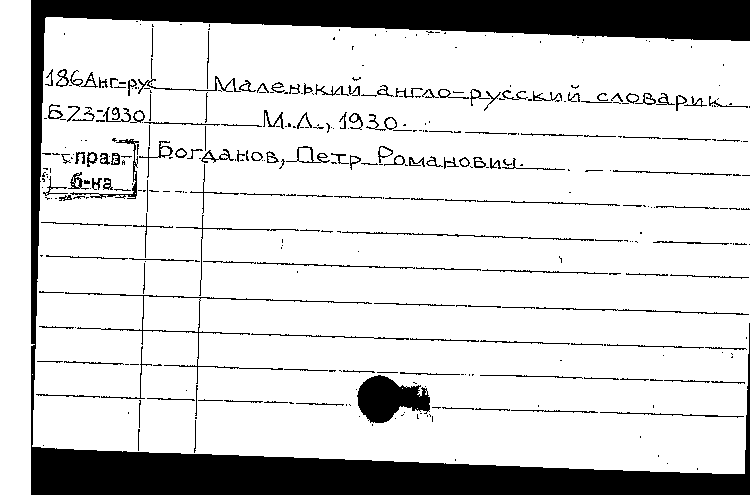 186Анг-рус Маленький англо-русский словарик.
Б73-1930 М.Л., 1930.
справ. Богданов, Петр Романович.
б-ка